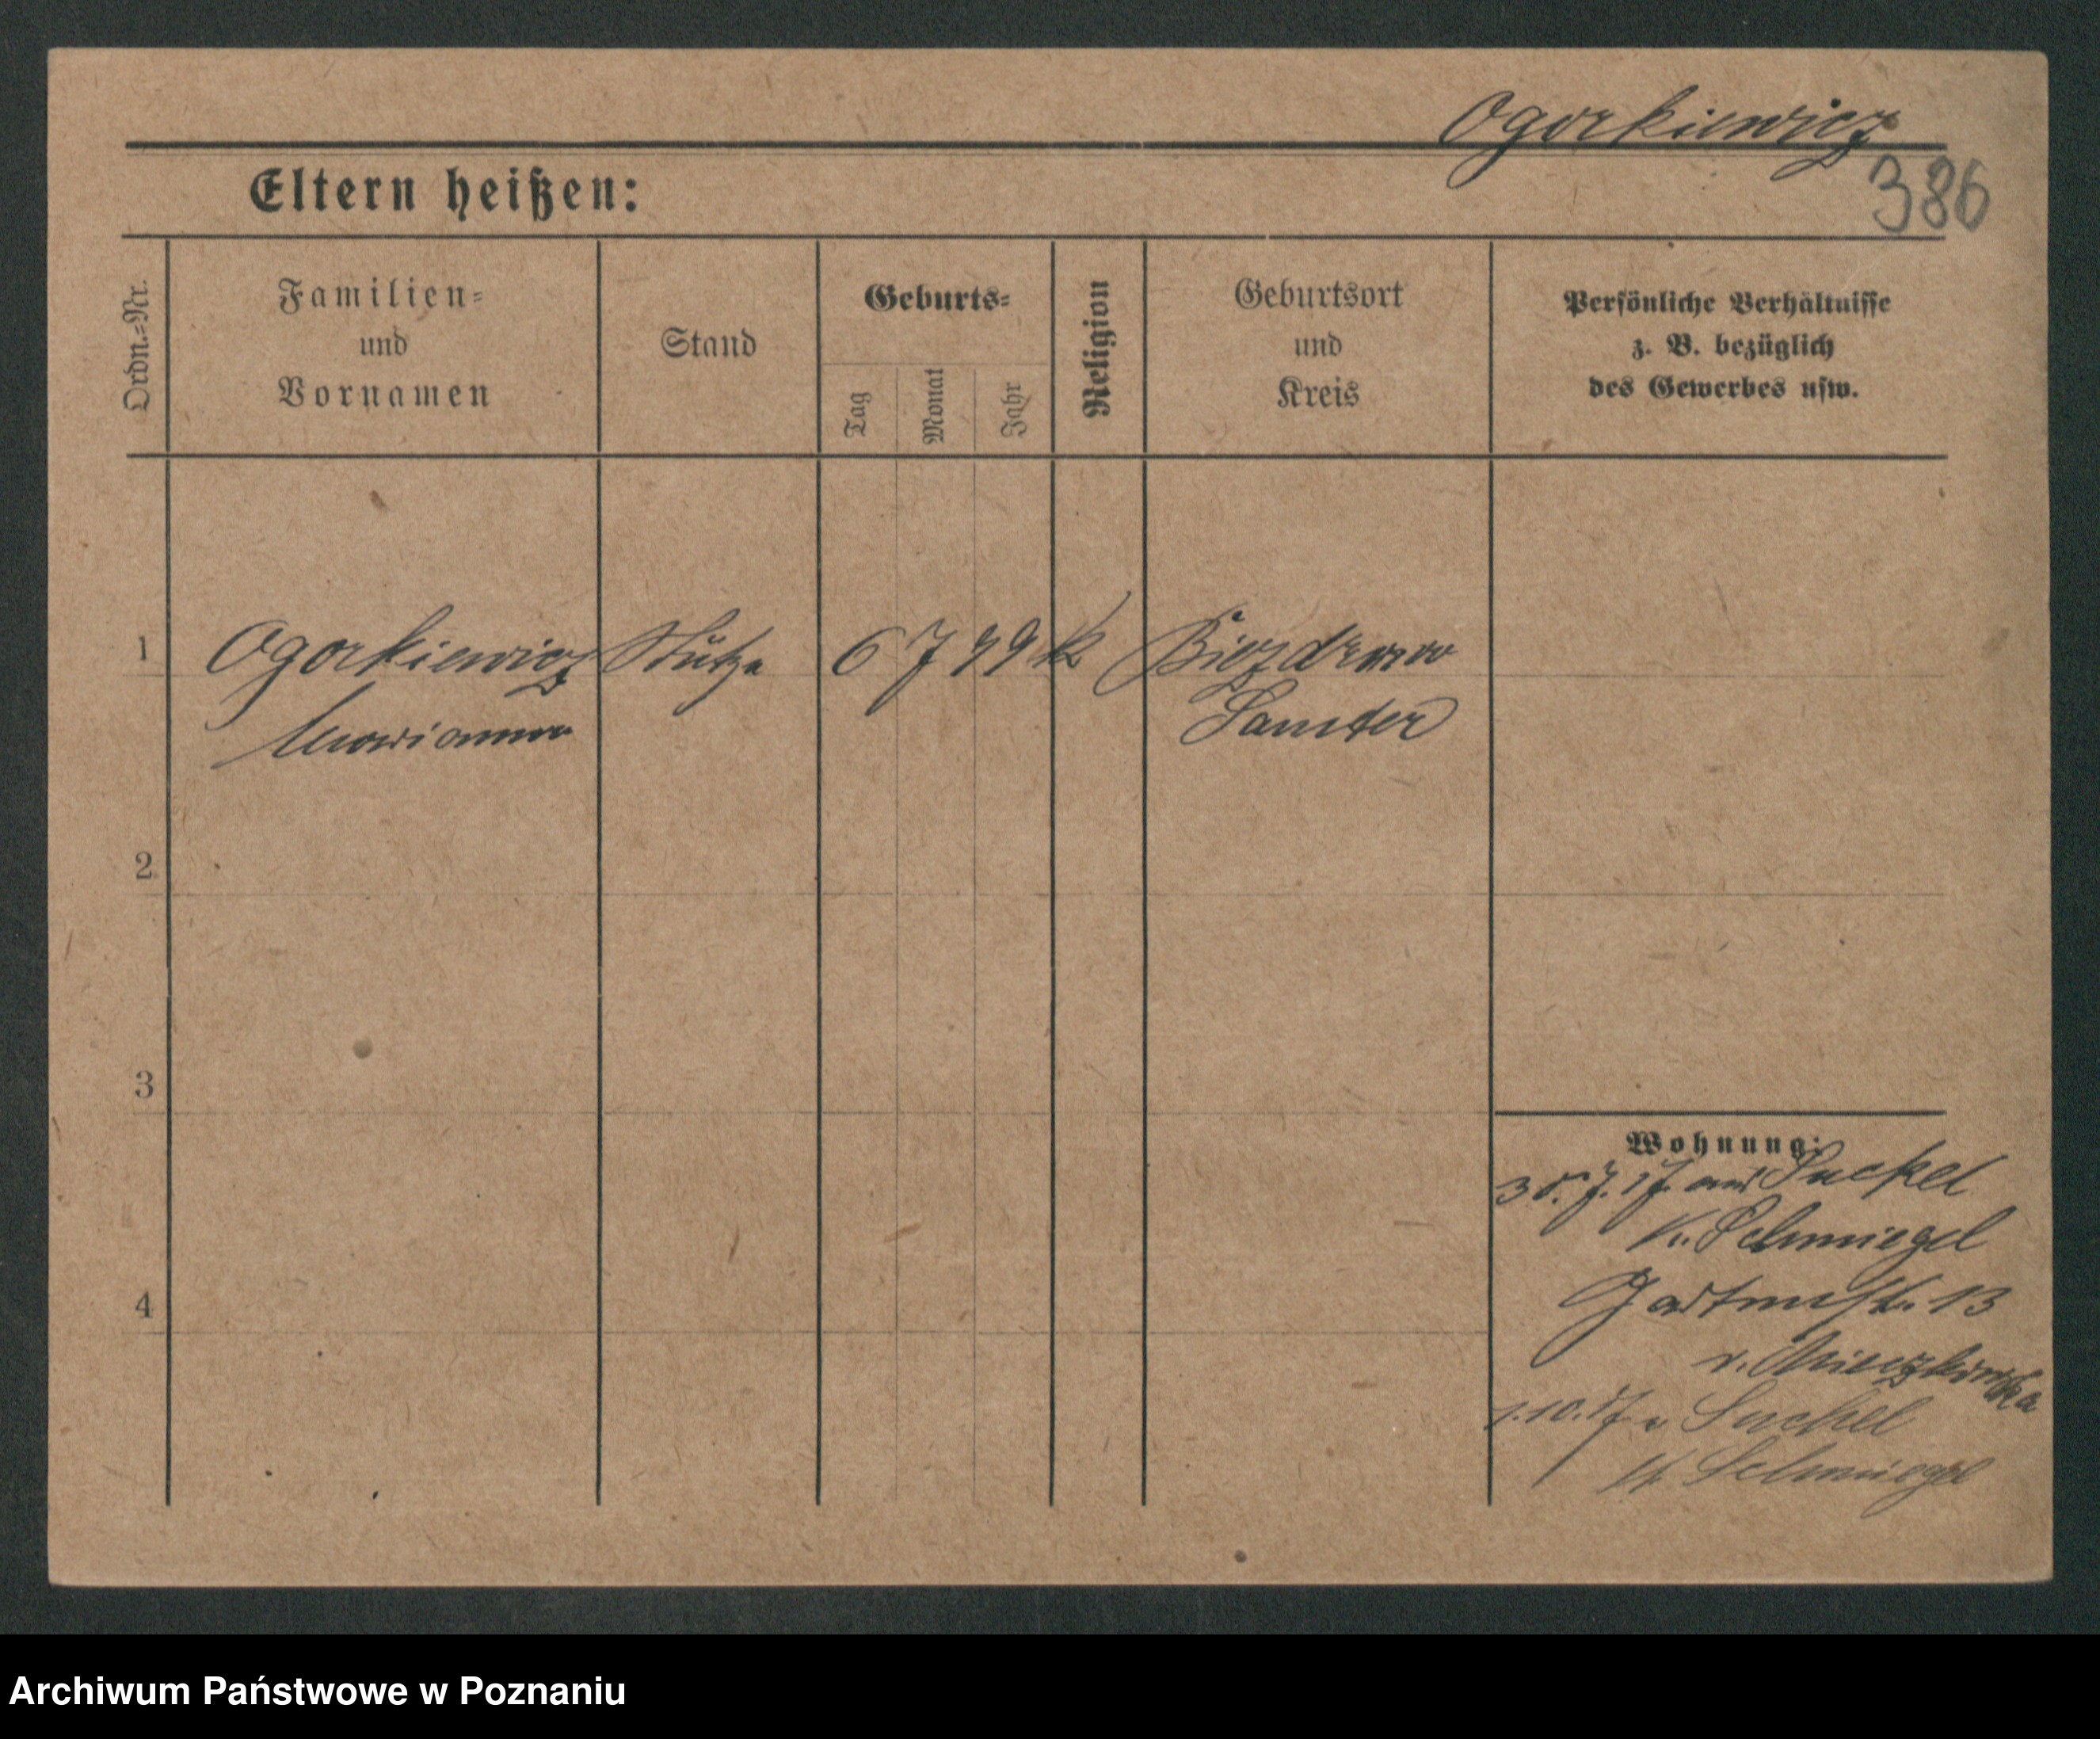 Ogorkiewicz
386
Eltern heißen:
Ordn.=Nr.
Familien=
und
Vornamen
Stand
Geburts=
Tag
Monat
Jahr
Religion
Geburtsort
und
Kreis
Persönliche Verhältnisse
z. B. bezüglich
des Gewerbes usw.
1 Ogorkiewicz Stütze 6 7 99 K Biezdrowo
Marianna Samter
2
3
4
Wohnung:
30.7.17. aus Suckel
Kr. Schmiegel
Gartenstr. 13
v.
1.10.17 n Suckel
Kr Schmiegel